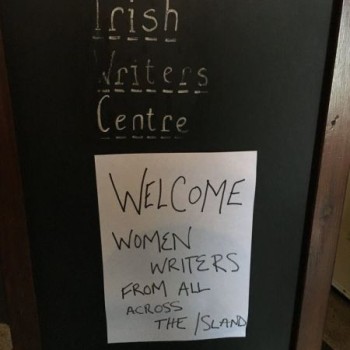 Irish
Writers
Centre
WELCOME
WOMEN
WRITERS
FROM ALL
ACROSS
THE ISLAND